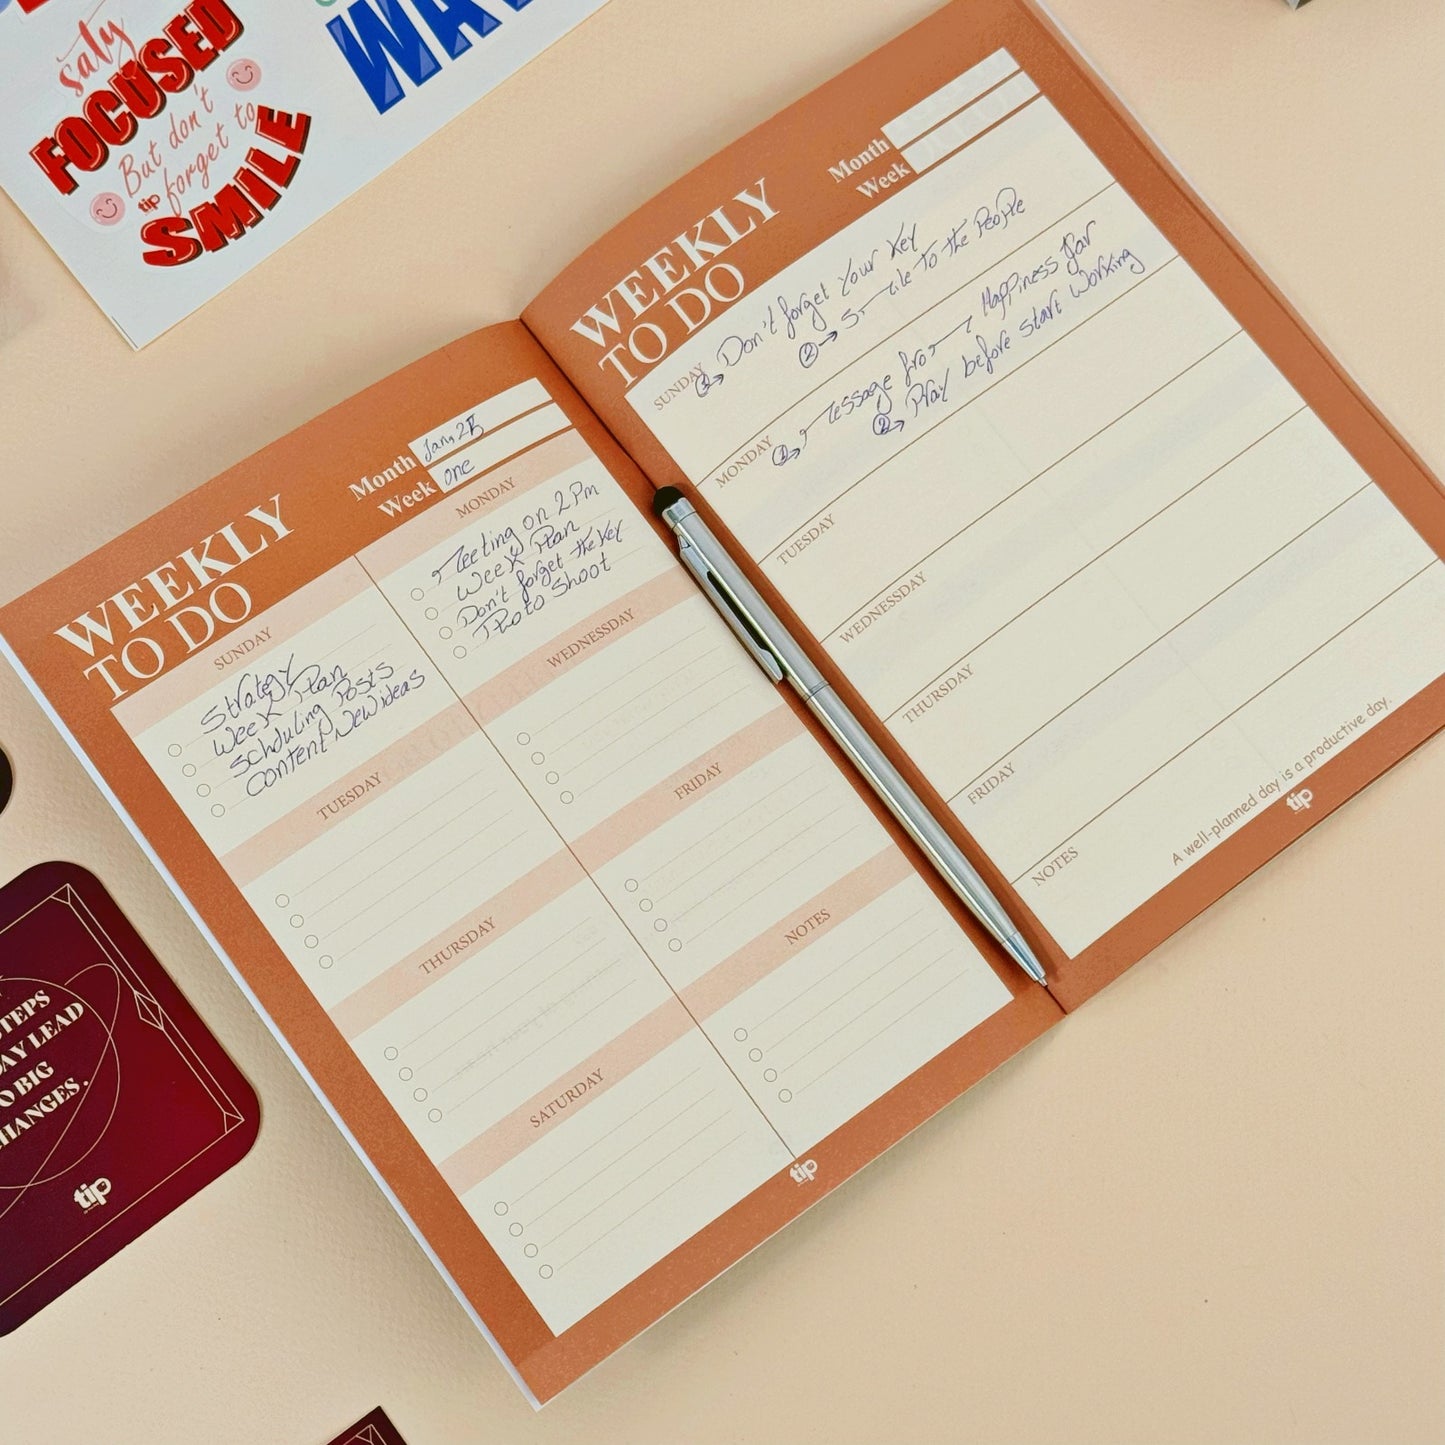 saty
FOCUSED
But don't
tip forget to
SMILE
WAY
WEEKLY
TO DO
Month Jan, 25
Week one
SUNDAY
Strategy
Week Plan
Schduling Posts
Content New ideas
MONDAY
Meeting on 2 Pm
Week Plan
Don't forget the key
Photo Shoot
TUESDAY
WEDNESDAY
THURSDAY
FRIDAY
SATURDAY
NOTES
tip
WEEKLY
TO DO
Month
Week
SUNDAY
1 → Don't forget Your Key
2 → Smile To the People
MONDAY
1 → Message from Happiness Jar
2 → Pray before start Working
TUESDAY
WEDNESDAY
THURSDAY
FRIDAY
NOTES
A well-planned day is a productive day.
tip
STEPS
DAY LEAD
TO BIG
CHANGES.
tip